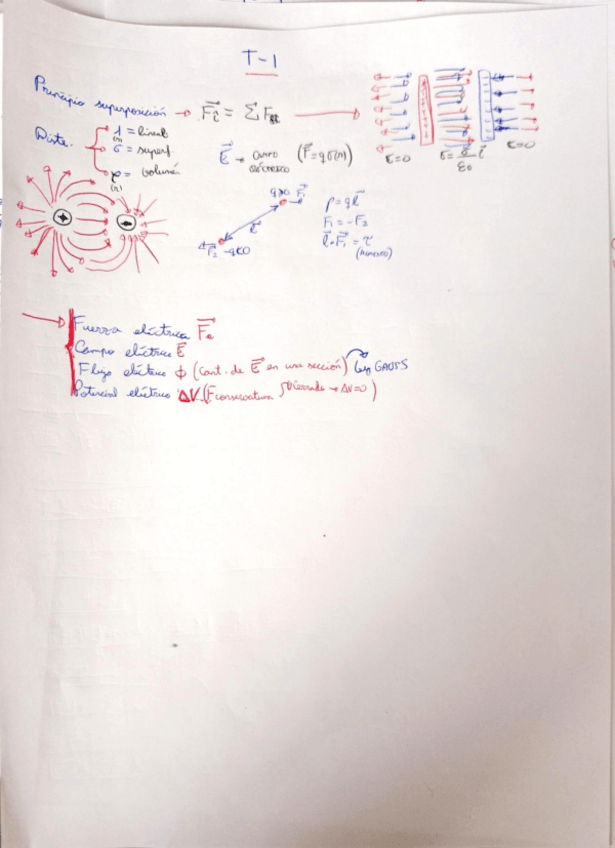 T-1
Principio superposición → F⃗i = ΣF
Distr. λ = lineal
(m)
σ = superf.
ρ = volumén
(n)
E⃗ → campo eléctrico (F⃗ = q E⃗(r))
E=0 E = σ/ε₀ i⃗ E=0
q>0 F⃗₁
l⃗
F⃗₂ -q<0
p = q l⃗
F₁ = -F₂
l⃗ · F⃗₁ = τ
(momento)
→ Fuerza eléctrica F⃗e
Campo eléctrico E⃗
Flujo eléctrico ϕ (cant. de E⃗ en una sección) Ley GAUSS
Potencial eléctrico ΔV (F conservativa → ΔV=0)